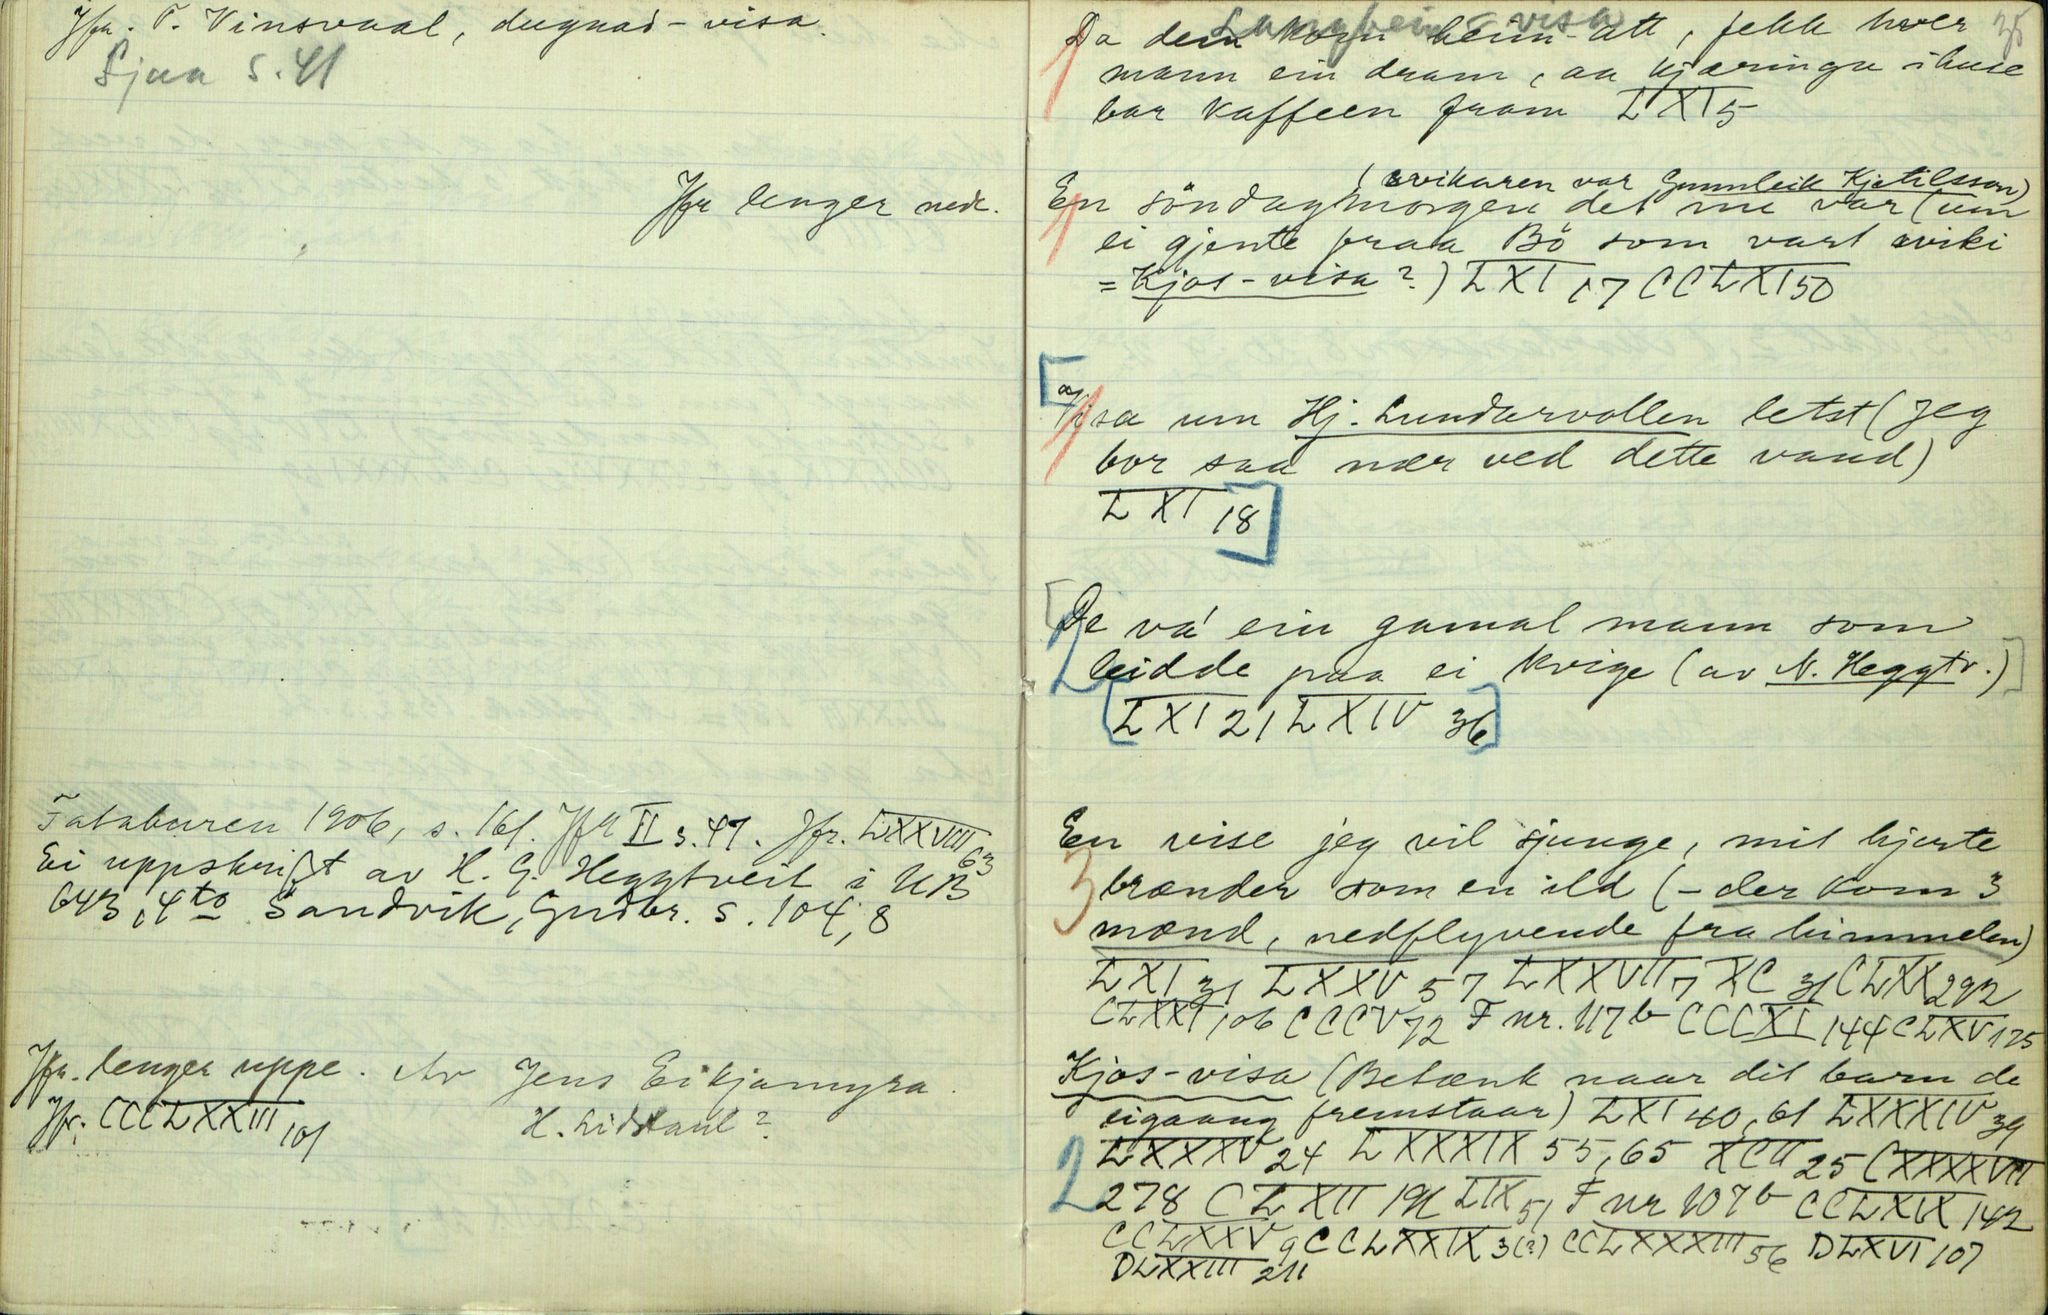 Jfr. T. Vinsvaal, dugnad-visa.
Sjaa s. 41
Jfr lenger ned.
Fataburen 1906, s. 161. Jfr II s. 47. Jfr. LXXVIII 63
Ei uppskrift av H. G. Heggtveit i UB
643, 4to Sandvik, Gudbr. s. 104, 8
Jfr. lenger uppe. Av Jens Eikjamyra.
Jfr. CCCLXXIII 101 H. Lidtaul?
Langbein-visa
35
1 Da dem kom heim-att, fekk hver
mann ein dram, aa kjæringa i huse
bar kaffeen fram LXI 5
(svikaren var Gunnleik Kjetilsson)
1 En söndagmorgen det nu var (um
ei gjente fraa Bö som vart sviki
= Kjos-visa?) LXI 17 CCLXI 50
1 Visa um Hj. Lundarvollen letst (Jeg
bor saa nær ved dette vand)
LXI 18]
[De va' ein gamal mann som
2 leidde paa ei kvige (av N. Heggtv.)]
[LXI 21 LXIV 36]
En vise jeg vil sjunge, mit hjerte
3 brænder som en ild (- der kom 3
mænd, nedflyvende fra himmelen)
LXI 31 LXXV 57 LXXVII 7 XC 31 CLXX 292
CLXXI 106 CCCV 72 F nr. 117 b CCCXI 144 CLXV 125
Kjos-visa (Betænk naar dit barn de
eigaang fremstaar) LXI 40, 61 LXXXIV 39
2 LXXXV 24 LXXXIX 55, 65 XCII 25 CXXXXVII
278 CLXII 191 LIX 51 F nr 107 b CCLXIX 142
CCLXXV 9 CCLXXIX 3(?) CCLXXXIII 56 DLXVI 107
DLXXIII 211